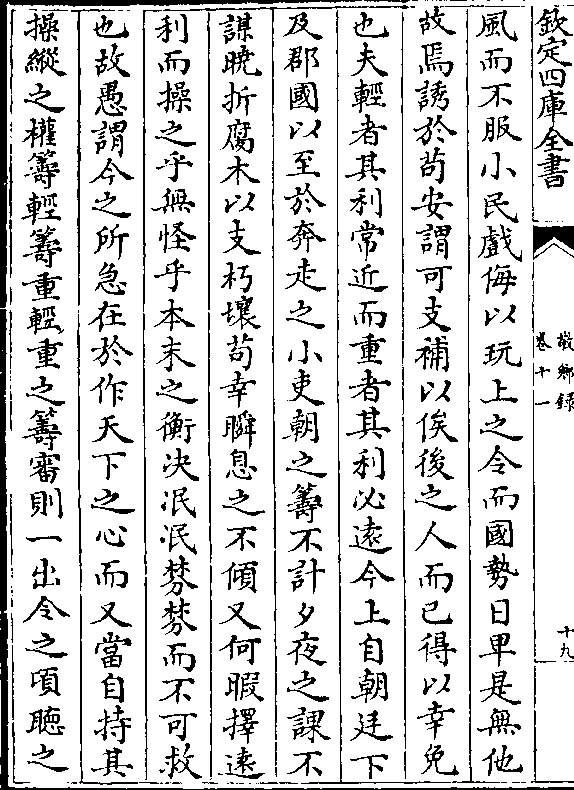 欽定四庫全書
敬鄉録
卷十一
十九
風而不服小民戲侮以玩上之令而國勢日卑是無他
故焉誘於茍安謂可支補以俟後之人而已得以幸免
也夫輕者其利常近而重者其利必逺今上自朝廷下
及郡國以至於奔走之小吏朝之籌不計夕夜之課不
謀曉折腐木以支朽壤茍幸瞬息之不傾又何暇擇逺
利而操之乎無怪乎本末之衡决泯泯棼棼而不可救
也故愚謂今之所急在於作天下之心而又當自持其
操縱之權籌輕籌重輕重之籌審則一出令之頃聴之